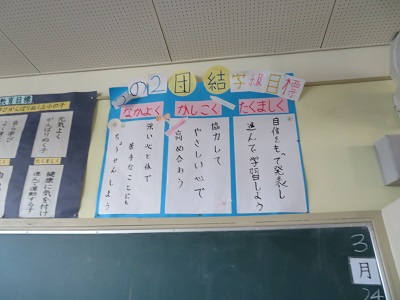 2の2団結学級目標
なかよく
かしこく
たくましく
自信をもって発表し
進んで学習しよう
協力して
やさしい心で
高め合おう
強い心と体で
苦手なことにも
ちょうせんしよう
教育目標
元気よく
がんばりぬく子
健康に気を付け
進んで運動する子
3
月
24